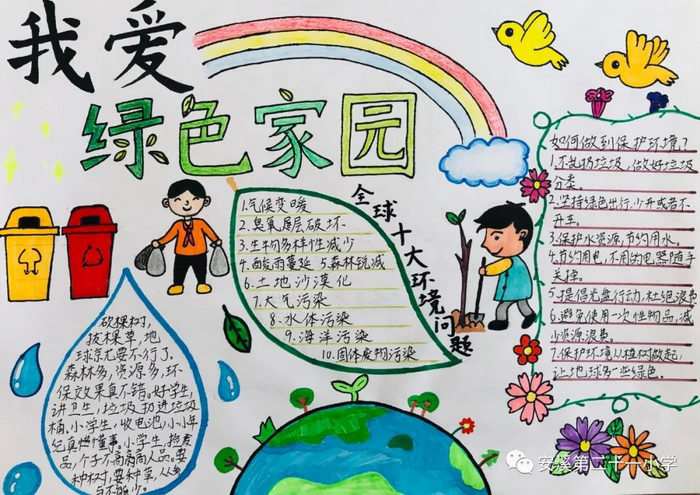 我爱
绿色家园
全球十大环境问题
1.气候变暖
2.臭氧层破坏
3.生物多样性减少
4.酸雨蔓延 5.森林锐减
6.土地沙漠化
7.大气污染
8.水体污染
9.海洋污染
10.固体废物污染
如何做到保护环境?
1.不乱扔垃圾,做好垃圾
分类。
2.坚持绿色出行,少开或者不
开车。
3.保护水资源,节约用水。
4.节约用电,不用的电器随手
关掉。
5.提倡光盘行动,杜绝浪
6.避免使用一次性物品,减
少资源浪费。
7.保护环境从植树做起,
让地球多一些绿色。
砍棵树,
拔棵草,地
球哭
森林多,资源多,环
保效果真不错。好学生,
讲卫生,垃圾扔进垃圾
桶,小学生,收电池,小小年
纪真懂事。小学生,
品,个子不高人品。要
种树,要种草,从
安溪第二十一小学